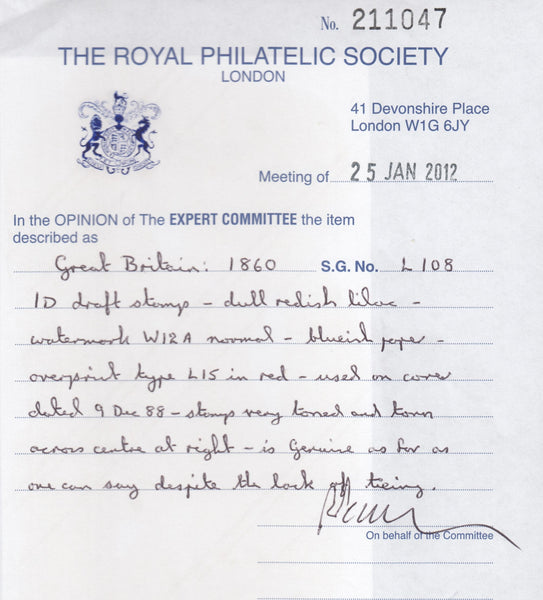 No. 211047
THE ROYAL PHILATELIC SOCIETY
LONDON
41 Devonshire Place
London W1G 6JY
Meeting of 25 JAN 2012
In the OPINION of The EXPERT COMMITTEE the item
described as
Great Britain: 1860 S.G. No. L 108
1D draft stamp - dull redish lilac -
watermark W12A normal - blueish paper -
overprint type L15 in red - used on cover
dated 9 Dec 88 - stamp very toned and torn
across centre at right - is Genuine as far as
one can say despite the lack of tieing.
On behalf of the Committee